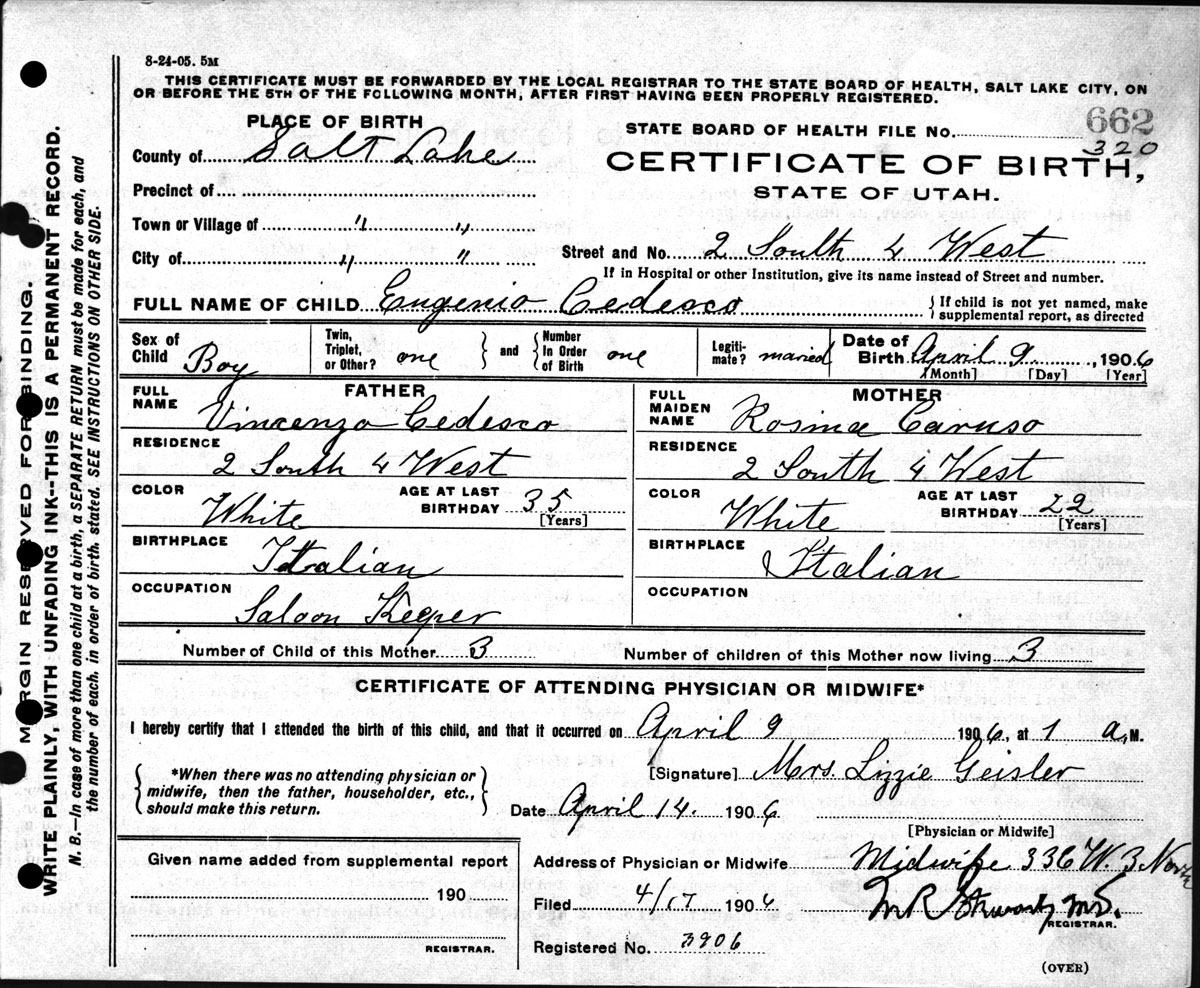 8-24-05. 5M
THIS CERTIFICATE MUST BE FORWARDED BY THE LOCAL REGISTRAR TO THE STATE BOARD OF HEALTH, SALT LAKE CITY, ON
OR BEFORE THE 5TH OF THE FOLLOWING MONTH, AFTER FIRST HAVING BEEN PROPERLY REGISTERED.
PLACE OF BIRTH
STATE BOARD OF HEALTH FILE NO. 662
320
County of Salt Lake
CERTIFICATE OF BIRTH,
STATE OF UTAH.
Precinct of
Town or Village of " "
City of " "
Street and No. 2 South 4 West
If in Hospital or other Institution, give its name instead of Street and number.
FULL NAME OF CHILD Eugenio Cedesco
If child is not yet named, make
supplemental report, as directed
Sex of Child Boy
Twin, Triplet, or Other? one and Number In Order of Birth one
Legitimate? maried
Date of Birth April 9, 1906
[Month] [Day] [Year]
FATHER
FULL NAME Vincenzo Cedesco
RESIDENCE
2 South 4 West
COLOR White
AGE AT LAST BIRTHDAY 35
[Years]
BIRTHPLACE
Ittalian
OCCUPATION
Saloon Keeper
MOTHER
FULL MAIDEN NAME Rosina Caruso
RESIDENCE
2 South 4 West
COLOR White
AGE AT LAST BIRTHDAY 22
[Years]
BIRTHPLACE
Italian
OCCUPATION
Number of Child of this Mother 3
Number of children of this Mother now living 3
CERTIFICATE OF ATTENDING PHYSICIAN OR MIDWIFE*
I hereby certify that I attended the birth of this child, and that it occurred on April 9 1906, at 1 a.M.
*When there was no attending physician or
midwife, then the father, householder, etc.,
should make this return.
[Signature] Mrs. Lizzie Geisler
Date April 14. 1906
[Physician or Midwife]
Given name added from supplemental report
190
REGISTRAR.
Address of Physician or Midwife Midwife 336 W. 3 North
Filed 4/17 1906
M R Stewart MD.
REGISTRAR.
Registered No. 3906
(OVER)
MARGIN RESERVED FOR BINDING.
WRITE PLAINLY, WITH UNFADING INK--THIS IS A PERMANENT RECORD.
N. B.--In case of more than one child at a birth, a SEPARATE RETURN must be made for each, and
the number of each, in order of birth, stated. SEE INSTRUCTIONS ON OTHER SIDE.